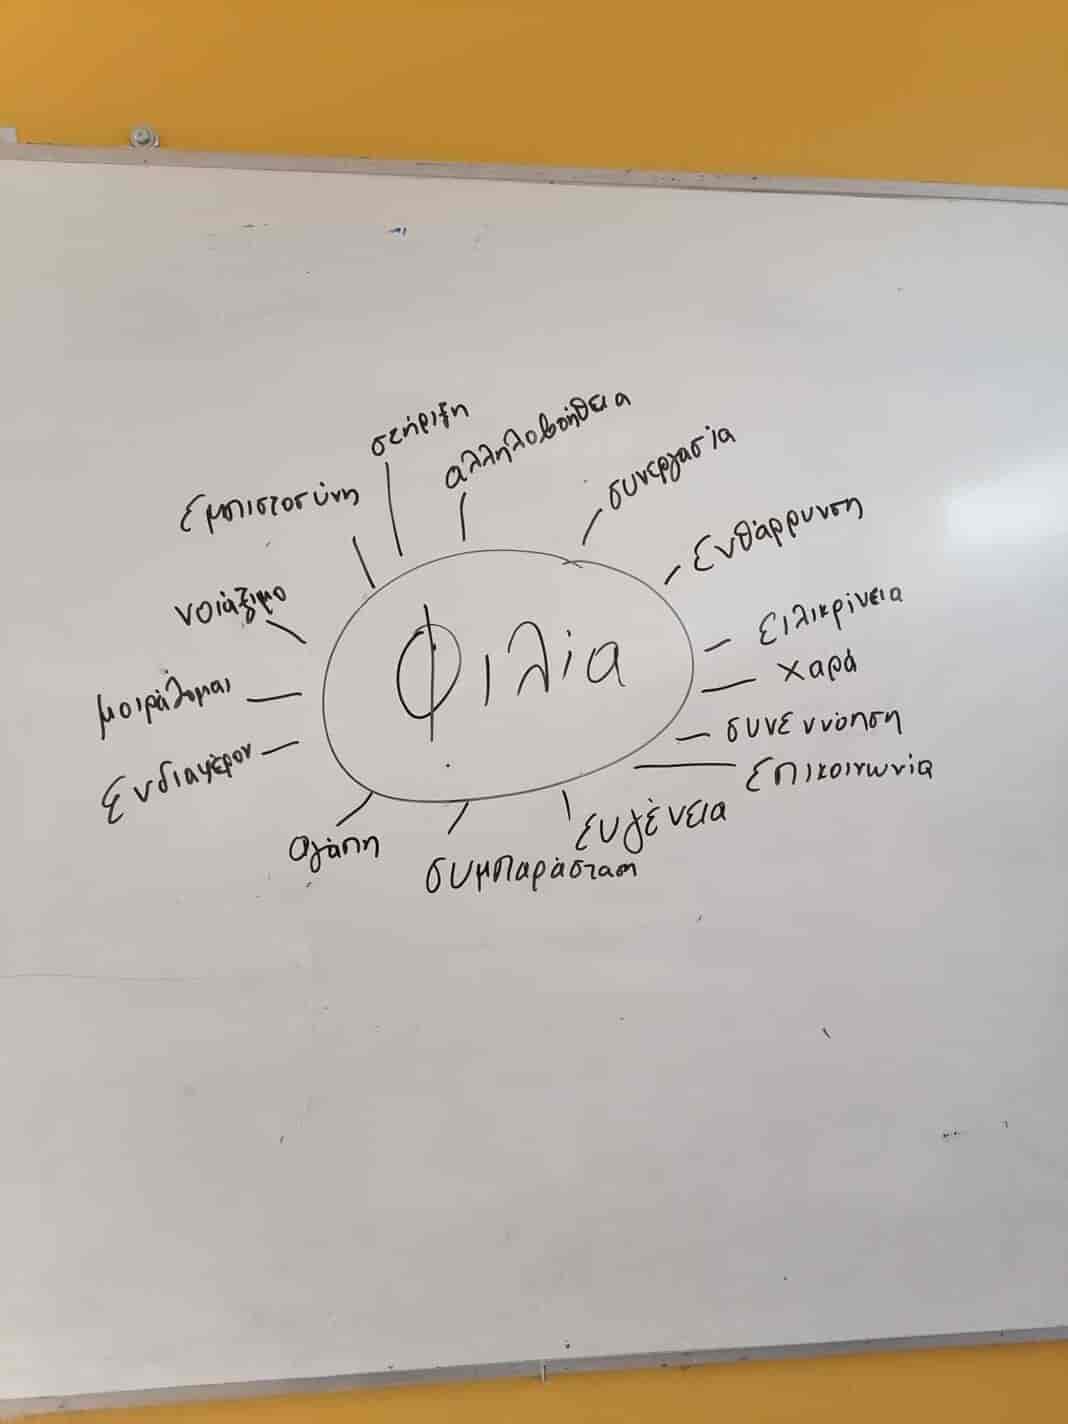 στήριξη
αλληλοβοήθεια
συνεργασία
Εμπιστοσύνη
Ενθάρρυνση
νοιάξιμο
ειλικρίνεια
Φιλία
χαρά
μοιράζομαι
συνεννόηση
Ενδιαφέρον
Επικοινωνία
Ευγένεια
αγάπη
συμπαράσταση